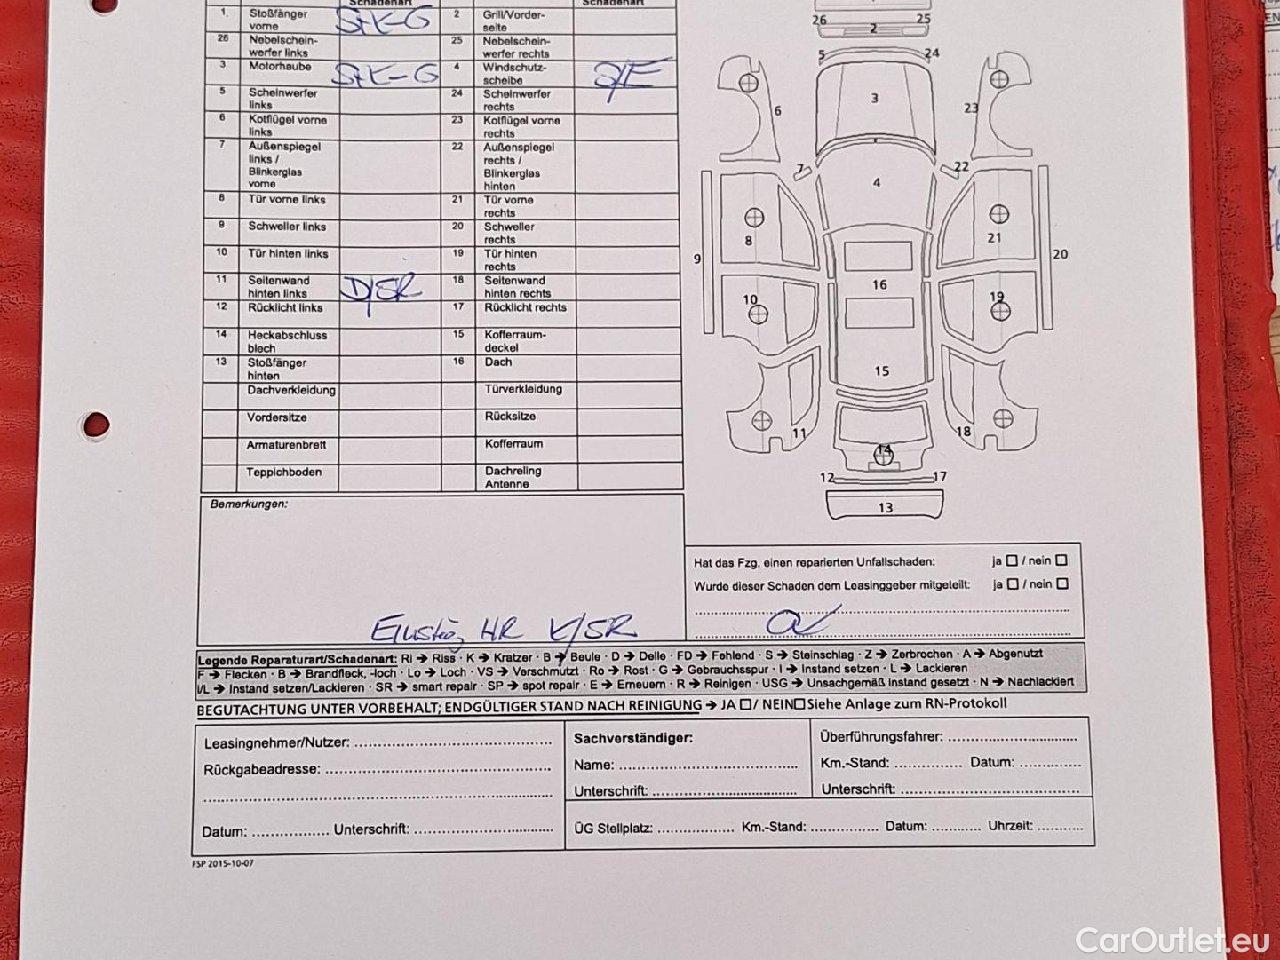 Schadenart
Schadenart
1 Stoßfänger vorne StK-G 2 Grill/Vorder-seite
26 Nebelschein-werfer links 25 Nebelschein-werfer rechts
3 Motorhaube StK-G 4 Windschutz-scheibe S/E
5 Scheinwerfer links 24 Scheinwerfer rechts
6 Kotflügel vorne links 23 Kotflügel vorne rechts
7 Außenspiegel links / Blinkerglas vorne 22 Außenspiegel rechts / Blinkerglas hinten
8 Tür vorne links 21 Tür vorne rechts
9 Schweller links 20 Schweller rechts
10 Tür hinten links 19 Tür hinten rechts
11 Seitenwand hinten links D/SR 18 Seitenwand hinten rechts
12 Rücklicht links 17 Rücklicht rechts
14 Heckabschluss blech 15 Kofferraum-deckel
13 Stoßfänger hinten 16 Dach
Dachverkleidung Türverkleidung
Vordersitze Rücksitze
Armaturenbrett Kofferraum
Teppichboden Dachreling Antenne
26 25
2
5 24
3
6 23
7 22
4
8 21
9 20
16
10 19
15
11 18
14
12 17
13
Bemerkungen:
Einstieg HR K/SR
Hat das Fzg. einen reparierten Unfallschaden: ja ☐ / nein ☐
Wurde dieser Schaden dem Leasinggeber mitgeteilt: ja ☐ / nein ☐
Legende Reparaturart/Schadenart: RI → Riss · K → Kratzer · B → Beule · D → Delle · FD → Fehlend · S → Steinschlag · Z → Zerbrochen · A → Abgenutzt
F → Flecken · B → Brandfleck, -loch · Lo → Loch · VS → Verschmutzt · Ro → Rost · G → Gebrauchsspur · I → Instand setzen · L → Lackieren
I/L → Instand setzen/Lackieren · SR → smart repair · SP → spot repair · E → Erneuern · R → Reinigen · USG → Unsachgemäß instand gesetzt · N → Nachlackiert
BEGUTACHTUNG UNTER VORBEHALT; ENDGÜLTIGER STAND NACH REINIGUNG → JA ☐ / NEIN ☐ Siehe Anlage zum RN-Protokoll
Leasingnehmer/Nutzer:
Rückgabeadresse:
Datum: Unterschrift:
Sachverständiger:
Name:
Unterschrift:
Überführungsfahrer:
Km.-Stand: Datum:
Unterschrift:
ÜG Stellplatz: Km.-Stand: Datum: Uhrzeit:
FSP 2015-10-07
CarOutlet.eu